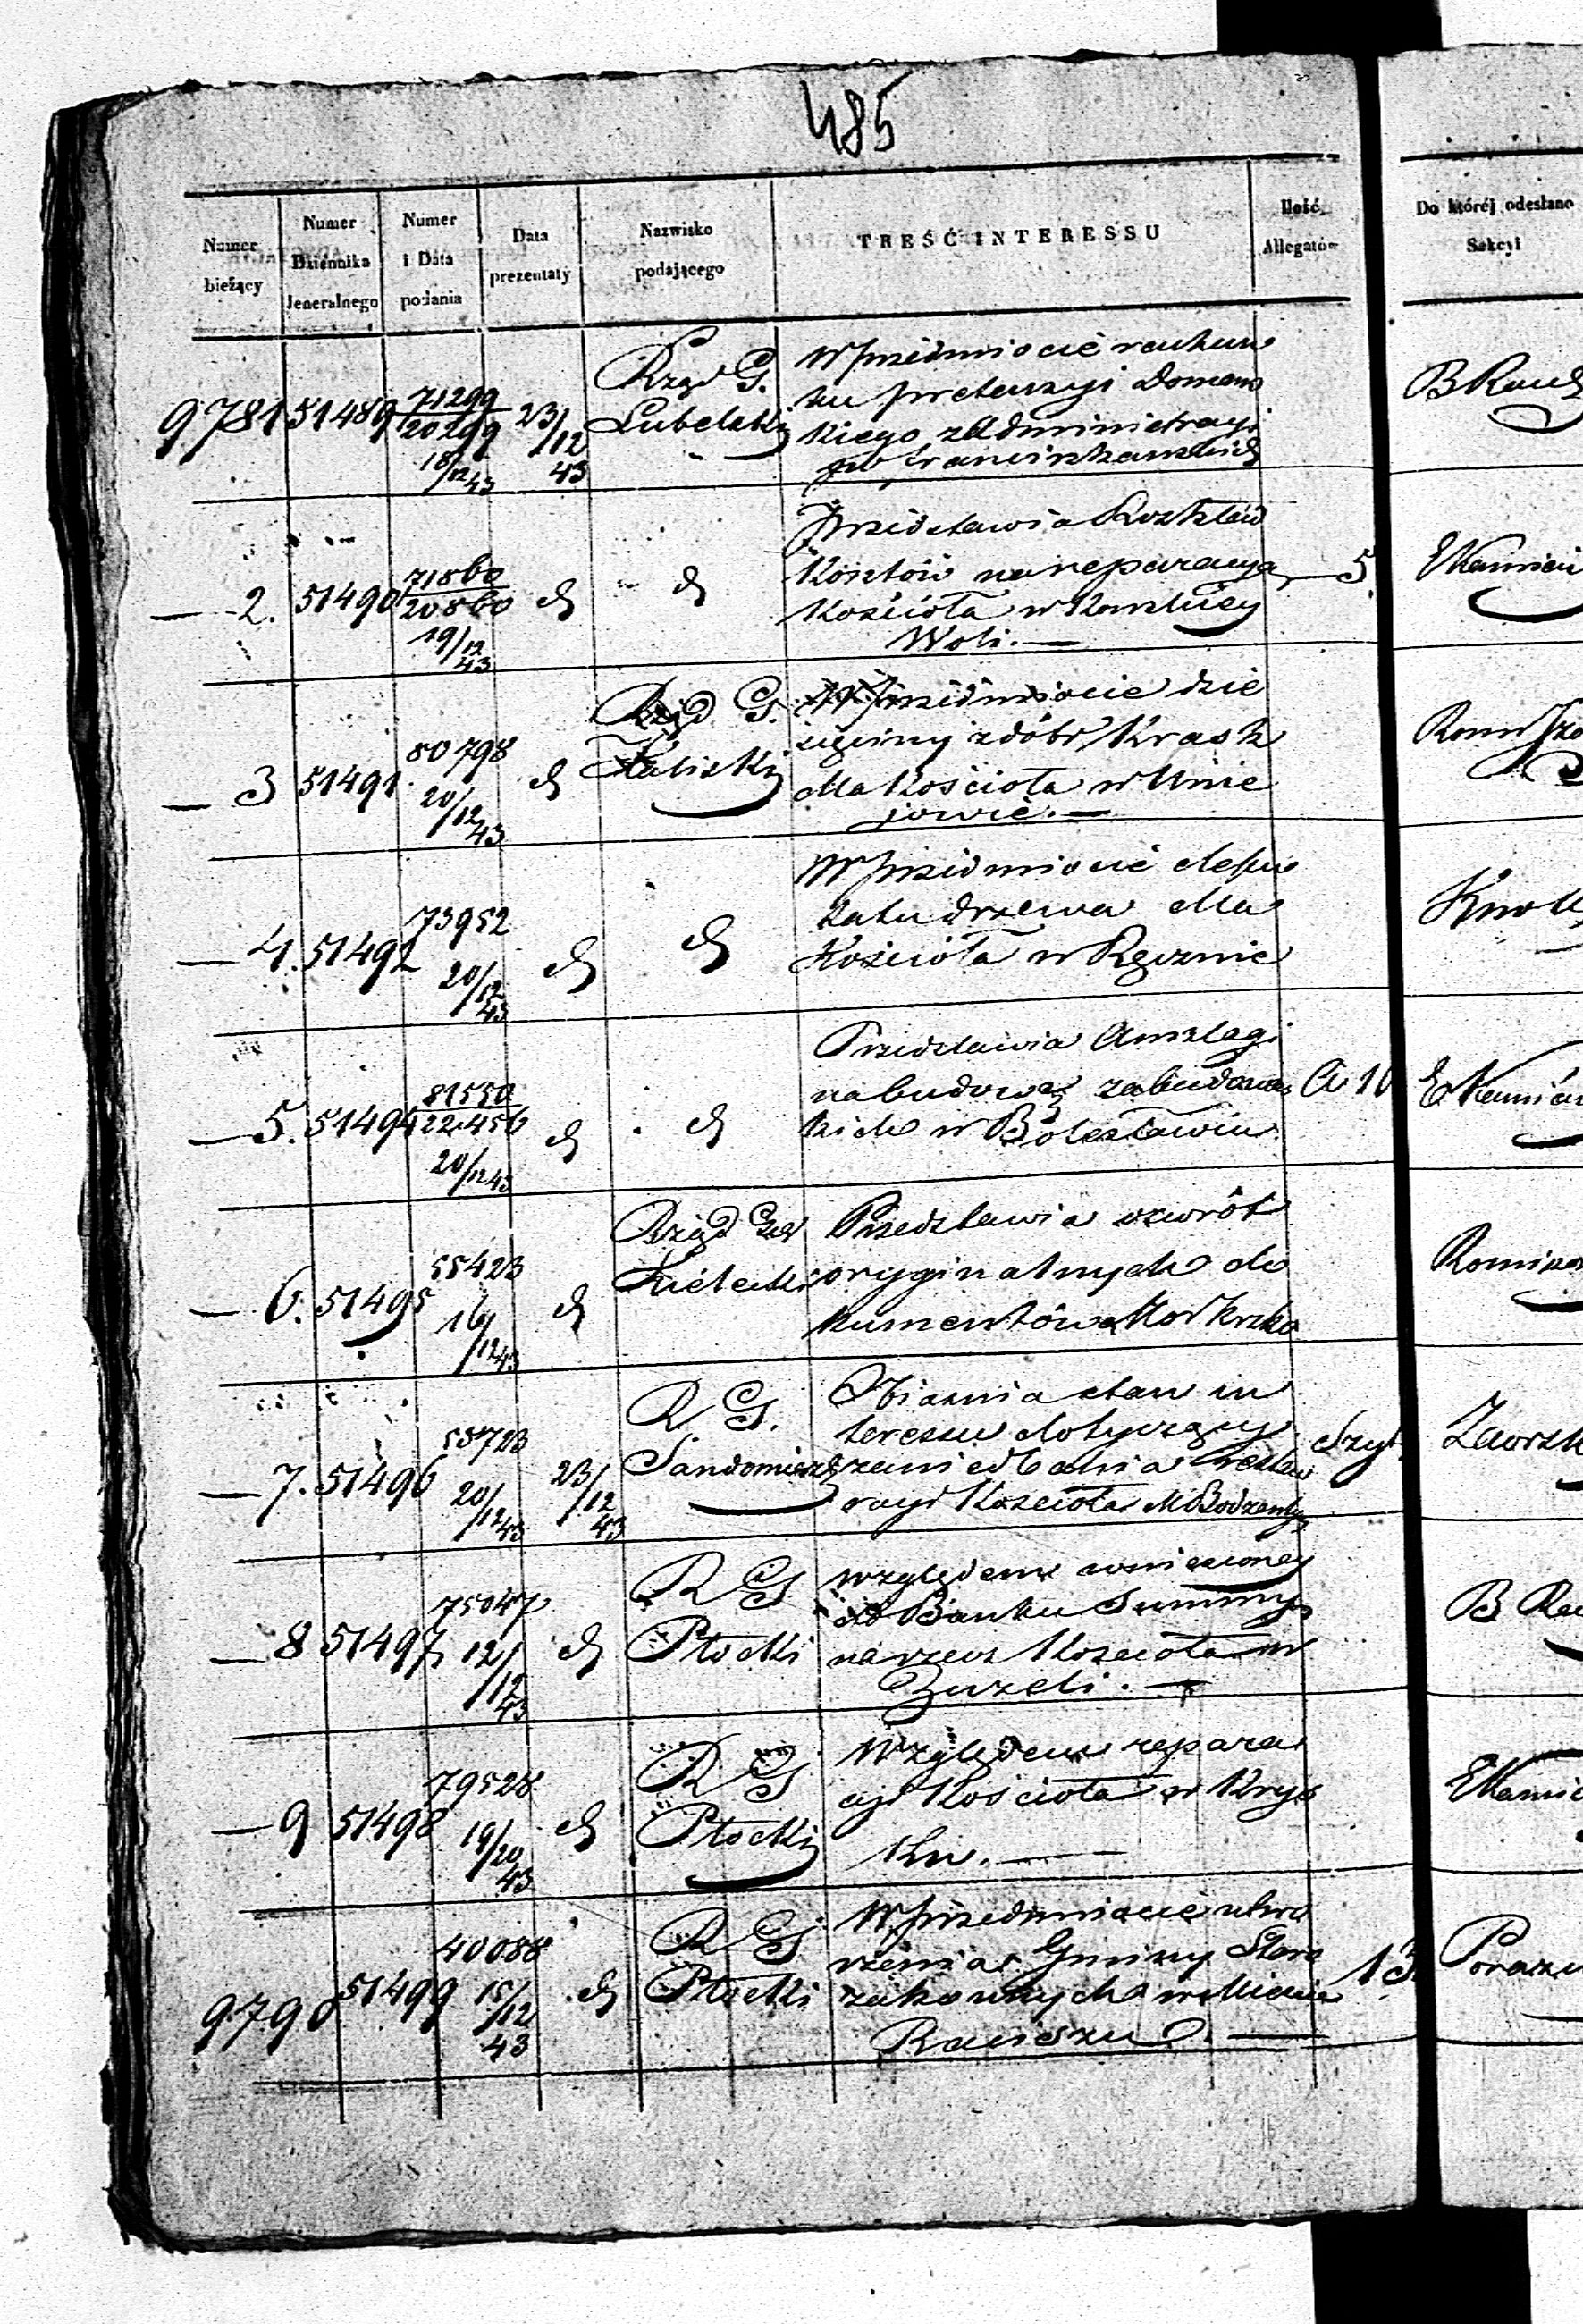 485
Numer bieżący | Numer Dziennika Jeneralnego | Numer i Data podania | Data prezentaty | Nazwisko podającego | TREŚĆ INTERESSU | Ilość Allegatów | Do któréj odesłano Sekcyi
9781 51489 71299/20299 18/12 43 23/12 43 Rząd G. Lubelski
W przedmiocie rachun
ku pretensyi
kiego z Administracyi
Franciszkańskich
B
2. 51490 71860/20860 19/12 43 d d
Przedstawia Rozkład
Kosztów na reparacyą 5
Kościoła w
Woli.
3 51491 80798 20/12 43 d Rząd G. Kaliski
W przedmiocie dzie
sięciny z dóbr Krask
dla Kościoła w Unie
jowie.
4. 51492 73952 20/12 43 d d
W przedmiocie depu
tatu drzewa dla
Kościoła w Ręcznie
5. 51494 81550/22456 20/12 43 d d
Przedstawia Anszlagi
na budowę zabudowań a 10
w Bolesławiu
6. 51495 55423 16/12 43 d Rząd Gub Kielecki
Przedstawia o zwrót
oryginalnych do
kumentów
7. 51496 53723 20/12 43 23/12 43 R G. Sandomierski
Obiaśnia stan in
teressu dotyczący Szyt
zaniedbania restau
racyi Kościoła M Bodzentyn
8 51497 75047 12/12 43 d R G Płocki
Względem wniesioney
do Banku Summy
na rzecz Kościoła w
Zuzeli.
B
9 51498 79528 19/20 43 d R G Płocki
Względem repara
cyi Kościoła w Krys
ku.
9790 51499 40088 15/12 43 d R G Płocki
W przedmiocie utwo
rzenia Gminy Staro
zakonnych w Mieście 13
Raciążu